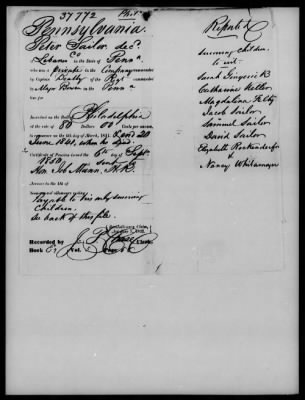 37772
Pennsylvania.
Peter Sailor decd.
Lebanon Co in the State of Penna
who was a private in the Company commanded
by Captain of the Regt commanded
by Major Bower in the Penna
Inscribed on the Roll of Philadelphia
at the rate of 80 Dollars 00 Cents per annum,
to commence on the 4th day of March, 1831. and 20
June 1841. when he died.
Certificate of Pension issued the 6th day of Sept
1850 sent to
Hon Job Mann, H.R.
Arrears to the 4th of
Semi-annual allowance ending
Payable to his only surviving
children.
See back of this file.
Recorded by Clerk,
Book E, Vol. Page
Reported
Surviving children.
to wit-
Catharine Keller
Magdalena Fetty
Jacob Sailor
Samuel Sailor
David Sailor
&
Nancy Whitamoyer